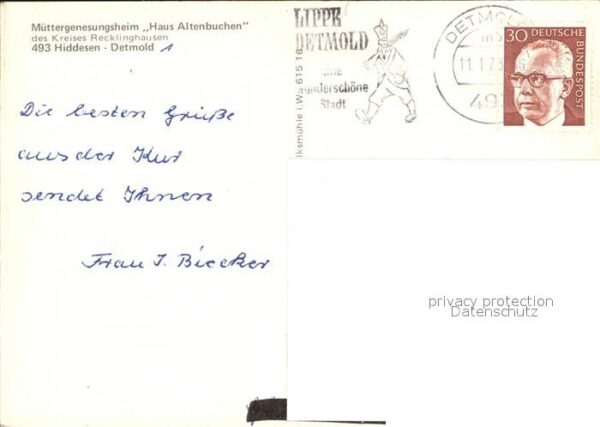 Müttergenesungsheim „Haus Altenbuchen"
des Kreises Recklinghausen
493 Hiddesen - Detmold 1
LIPPE
DETMOLD
eine
wunderschöne
Stadt
lksmühle i.W. 615 16
DETMOLD
11.1.73
493
30 DEUTSCHE
BUNDESPOST
Die besten Grüße
aus der Kur
sendet Ihnen
Frau I. Biecker
privacy protection
Datenschutz